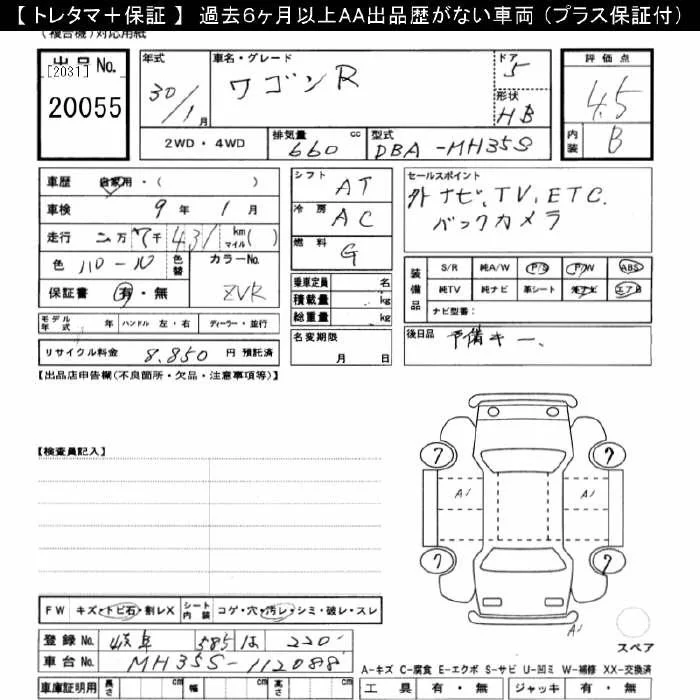 【 トレタマ＋保証 】 過去6ヶ月以上AA出品歴がない車両 (プラス保証付)
(複合機)対応用紙
出品No.
[2031]
20055
年式
30/1月
車名・グレード
ワゴンR
ドア
5
形状
HB
2WD・4WD
排気量
660 cc
型式
DBA-MH35S
評価点
4.5
内装
B
車歴 自家用・( )
車検 9年 1月
走行 二万 7千 431 km マイル( )
色 パール 色替 カラーNo.
ZVR
保証書 有・無
モデル年式 年 ハンドル 左・右 ディーラー・並行
リサイクル料金 8.850 円 預託済
シフト AT
冷房 AC
燃料 G
乗車定員 名
積載量 kg
総重量 kg
名変期限
月 日
セールスポイント
外ナビ、TV、ETC.
バックカメラ
装備品
S/R 純A/W P/S P/W ABS
純TV 純ナビ 革シート 社ナビ エアB
ナビ型番:
後日品 予備キー、
【出品店申告欄(不良箇所・欠品・注意事項等)】
【検査員記入】
7 7
A1 A1
7 7
A1
スペア
FW キズ・トビ石・割レX シート内装 コゲ・穴・汚レ・シミ・破レ・スレ
登録No. 岐阜 585 は 220
車台No. MH35S-112088
車庫証明用 長さ cm 幅 cm 高さ cm
A-キズ C-腐食 E-エクボ S-サビ U-凹ミ W-補修 XX-交換済
工具 有・無 ジャッキ 有・無